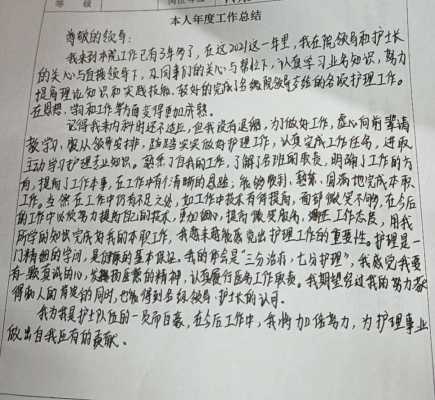 等 级
本人年度工作总结
尊敬的领导：
我来到本院工作已有3年多了，在这2021这一年里，我在院领导和护士长
的关心与直接领导下，及同事们的关心与帮助下，认真学习业务知识，努力
提高理论知识和实践技能，较好的完成了各级院领导交给的各项护理工作。
在思想、学习和工作等方面变得更加成熟。
记得我来内科时还不适应，但我没有退缩，为了做好工作，虚心向前辈请
教学习，服从领导安排，踏踏实实做好护理工作，认真完成工作任务，进取
主动学习护理专业知识。熟悉了自我的工作，了解了各班的职责，明确了工作的方
向，提高了工作本事，在工作中有了清晰的思路，能够顺利、熟练、圆满地完成本职
工作。当然在工作中仍有不足之处，如工作中技术有待提高，面部微笑不够，在今后
的工作中必须努力提高自己的技术，更加细心，提高微笑服务，端正工作态度，用我
所学的知识完成好我的本职工作，我越来越能感觉出护理工作的重要性。护理是一
门精细的学问，是治病的基本保证。我们常常是“三分治疗，七分护理”，我感觉我要
有一颗真诚的心，发扬救死扶伤的精神，认真履行医务工作职责。我期望经过我的努力获
得病人的肯定的同时，也能得到各级领导、护士长的认可。
我为我是护士队伍的一员而自豪，在今后工作中，我将加倍努力，为护理事业
做出自我应有的贡献。